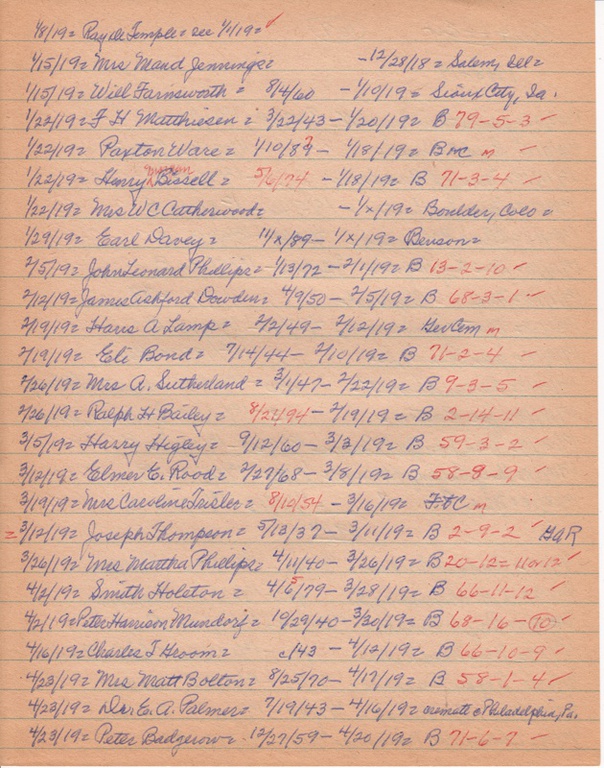 1/8/19= Ray de Temple= see 1/1/19= ✓
1/15/19= Mrs Maud Jennings= -12/28/18= Salem, Ill=
1/15/19= Will Farnsworth= 8/4/60 -1/10/19= Sioux City, Ia.
1/22/19= F H Matthiesen= 3/22/43- 1/20/19= B 79-5-3 ✓
1/22/19= Paxton Ware= 1/10/89? - 1/18/19= B m
1/22/19= Henry Bissell= 5/6/74 -1/18/19= B 71-3-4 ✓
1/22/19= Mrs W C Catherwood= -1/x/19= Boulder, Colo=
1/29/19= Earl Davey= 11/x/89- 1/x/19= Benson=
2/5/19= John Leonard Phillips= 1/13/72 -2/1/19= B 13-2-10 ✓
2/12/19= James Ashford Dowden= 4/9/50 -2/5/19= B 68-3-1 ✓
2/19/19= Hans A Lamp= 2/2/49- 2/12/19= Ger Cem m
2/19/19= Eli Bond= 7/14/44- 2/10/19= B 71-2-4 ✓
2/26/19= Mrs A. Sutherland= 3/1/47- 2/22/19= B 9-3-5 ✓
2/26/19= Ralph H Bailey= 8/21/94- 2/19/19= B 2-14-11 ✓
3/5/19= Harry Higley= 9/12/60- 3/3/19= B 59-3-2 ✓
3/12/19= Elmer E. Rood= 2/27/68- 3/8/19= B 58-9-9 ✓
3/19/19= Mrs Caroline Trisler= 8/10/54 - 3/16/19= m
= 3/12/19= Joseph Thompson= 5/13/37- 3/11/19= B 2-9-2 ✓ GAR
3/26/19= Mrs Martha Phillips= 4/11/40- 3/26/19= B 20-12= 11 or 12 ✓
4/2/19= Smith Holston= 4/6/79- 3/28/19= B 66-11-12 ✓
4/2/19= Peter Harrison Mundorf= 10/29/40- 3/20/19= B 68-16-10 ✓
4/16/19= Charles T Groom= c/43 - 4/12/19= B 66-10-9 ✓
4/23/19= Mrs Matt Bolton= 8/25/70- 4/17/19= B 58-1-4 ✓
4/23/19= Dr. E. A. Palmer= 7/19/43- 4/16/19= Philadelphia, Pa.
4/23/19= Peter Badgerow= 12/27/59- 4/20/19= B 71-6-7 ✓